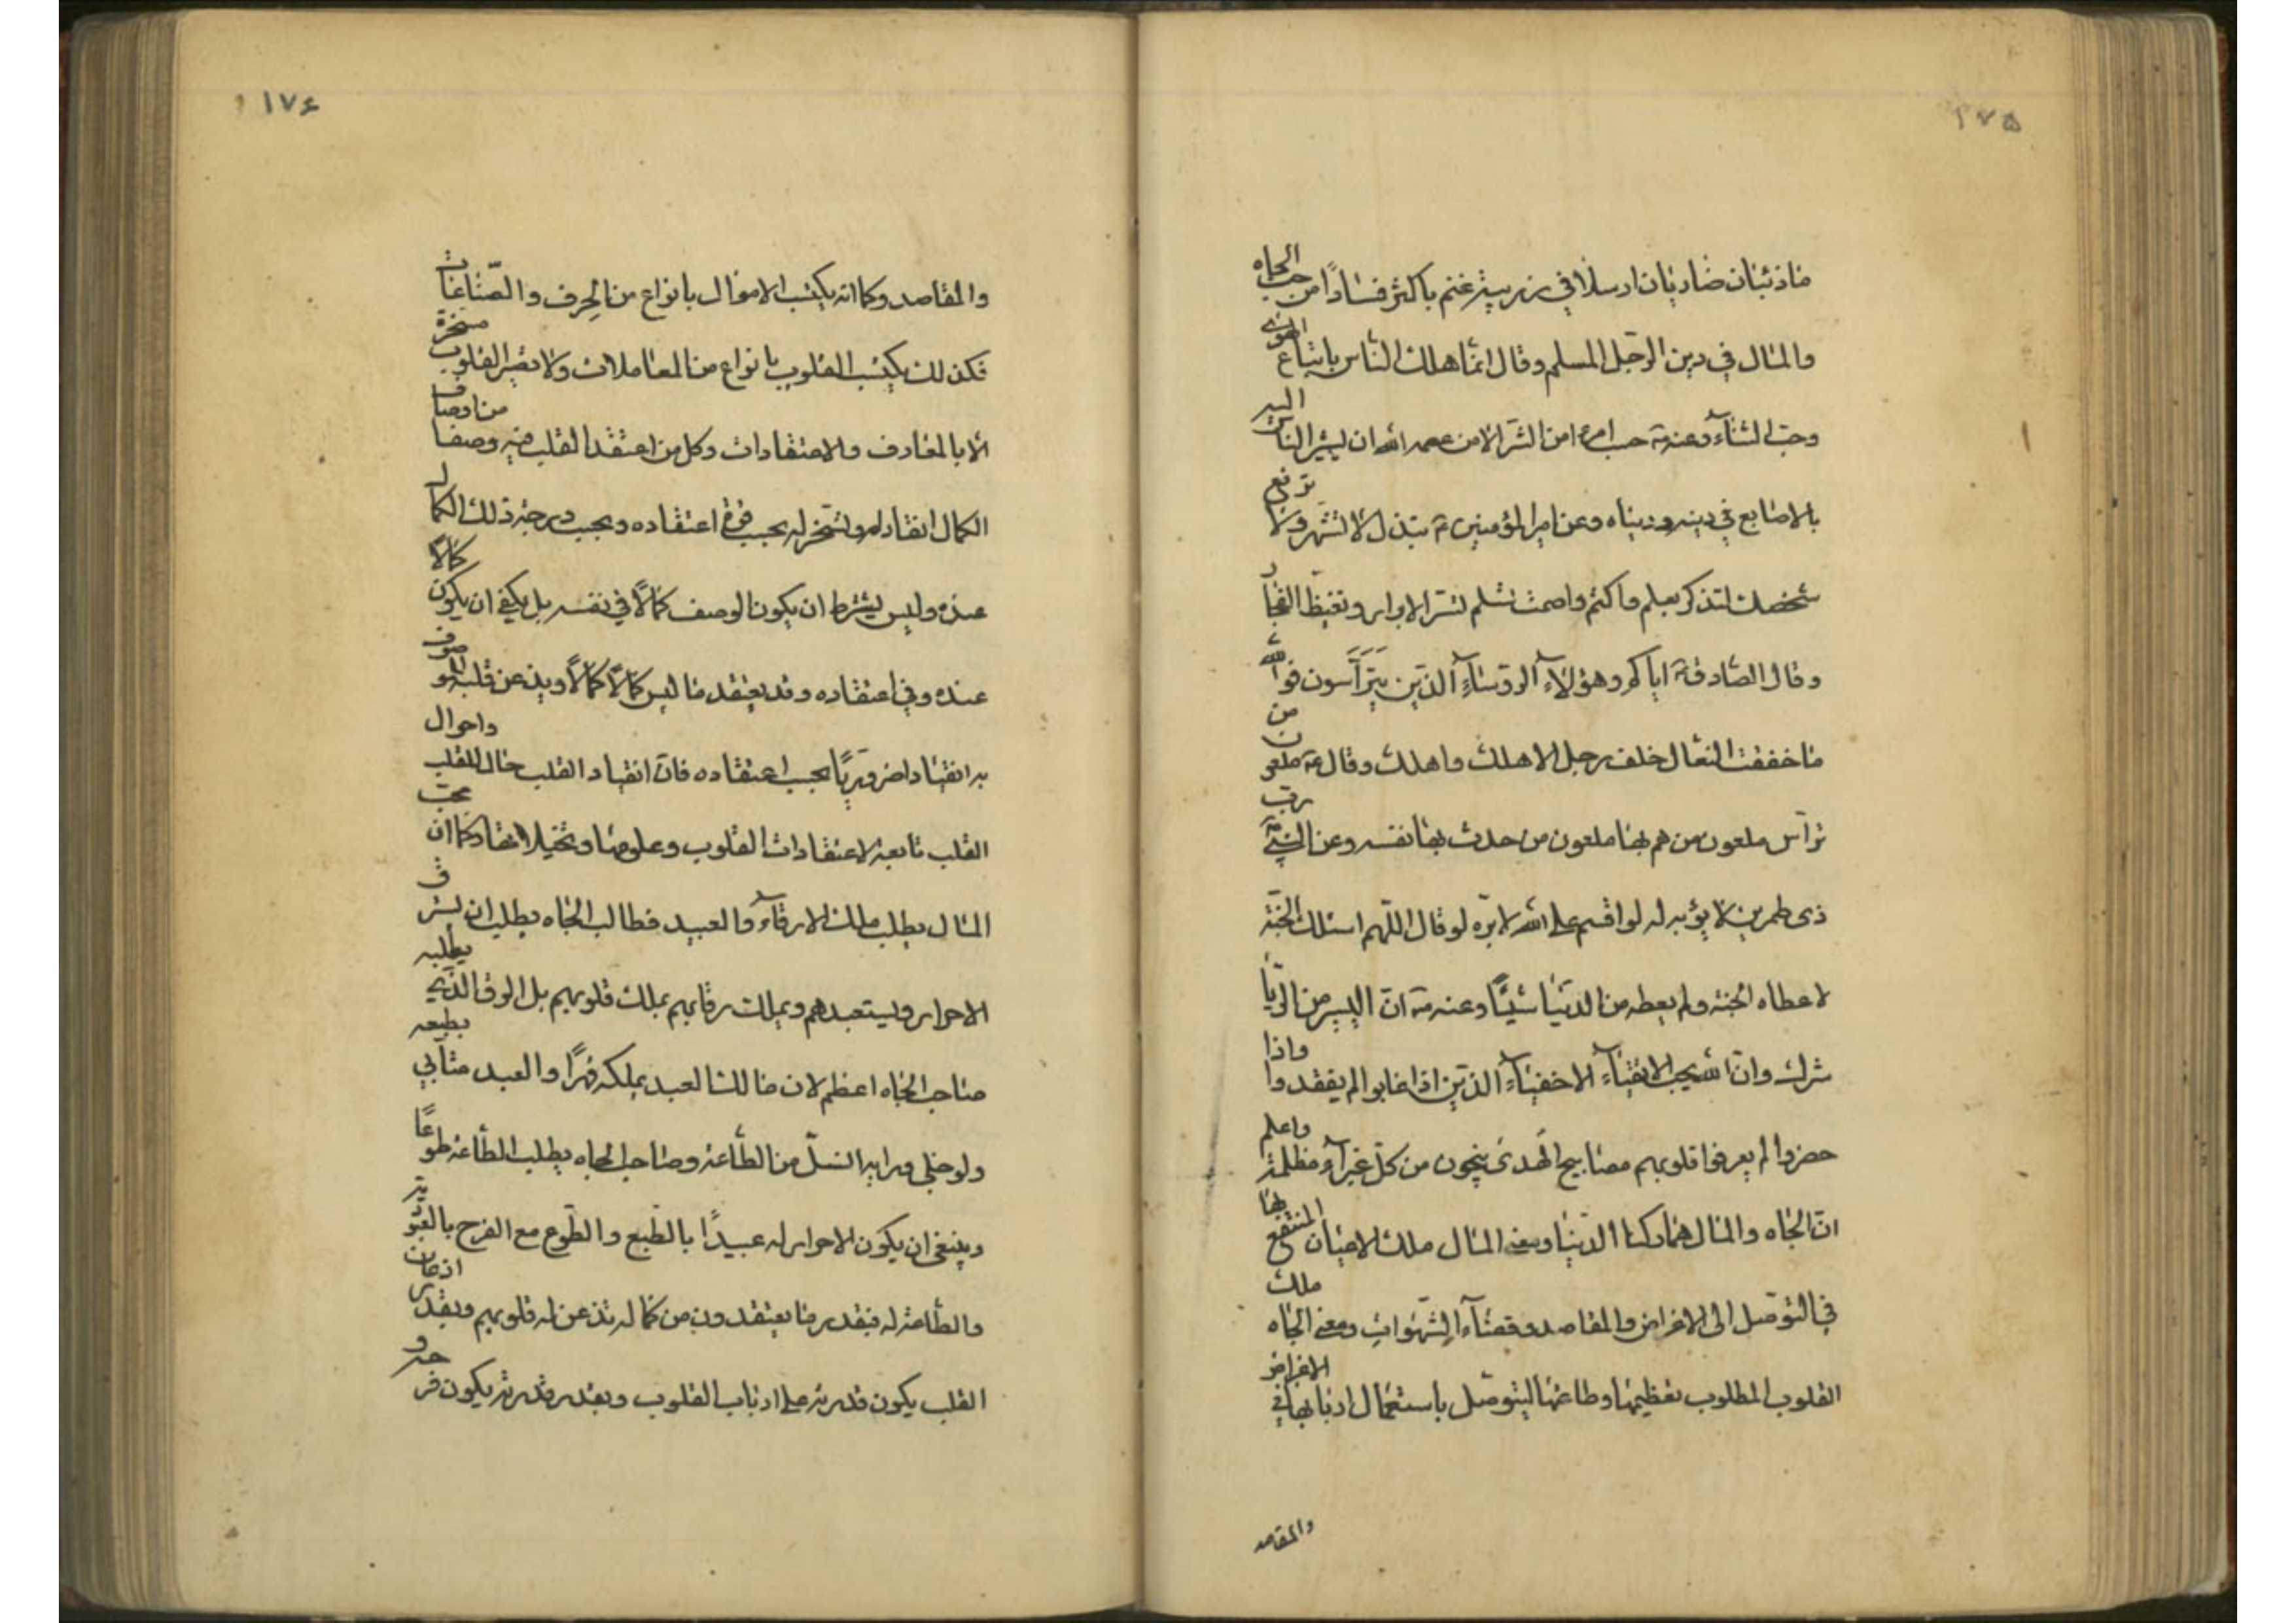 ١٧۵
ماذئبان ضاريان ارسلا في زريبة غنم باكثر فسادًا من حب الجاه
والمال في دين الرّجل المسلم وقال انّما هلك النّاس باتباع الهوى
وحبّ الثناء وعنه ص حسب امرء من الشّر الا من عصمه الله ان يشير الناس اليه
بالاصابع في دينه ودنياه وعن امير المؤمنين ع تبذل لا تشهر ولا ترفع
شخصك لتذكر بعلم واكتم واصمت تسلم تسّر الابرار وتغيظ الفجار
وقال الصّادق ع اياكم وهؤلاء الرؤساء الذين يترأسون فوالله
ما خفقت النعال خلف رجل الا هلك واهلك وقال ع ملعون من
ترأس ملعون من هم بها ملعون من حدث بها نفسه وعن النبي ص رب
ذى طمرين لا يؤبه له لو اقسم على الله لابرّه لو قال اللّهم اسئلك الجنة
لاعطاه الجنة ولم يعطه من الدنيا شيئًا وعنه ص انّ اليسير من الريا
شرك وانّ الله يحب الاتقياء الاخفياء الذين اذا غابوا لم يفقدوا واذا
حضروا لم يعرفوا قلوبهم مصابيح الهدى ينجون من كلّ غبراء مظلمة واعلم
انّ الجاه والمال هما ركنا الدنيا ومعنى المال ملك الاعيان المنتفع بها
في التوصّل الى الاغراض والمقاصد وقضاء الشّهوات ومعنى الجاه ملك
القلوب المطلوب تعظيمها وطاعتها ليتوصّل باستعمال اربابها في الاغراض
والمقاصد
١٧۶
والمقاصد وكما انه يكتسب الاموال بانواع من الحِرف والصّناعات
فكذلك يكتسب القلوب بانواع من المعاملات ولا تصير القلوب مسخرة
الا بالمعارف والاعتقادات وكل من اعتقد القلب فيه وصفا من اوصاف
الكمال انقاد له وتسخر له بحسب قوة اعتقاده وبحسب درجة ذلك الكمال
عنده وليس يشترط ان يكون الوصف كمالًا في نفسه بل يكفي ان يكون كمالا
عنده وفي اعتقاده وقد يعتقد ما ليس كمالًا كمالًا ويذعن قلبه للموصوف
به انقيادا ضروريًا بحسب اعتقاده فانّ انقياد القلب حال للقلب واحوال
القلب تابعة لاعتقادات القلوب وعلومها وتخيلاتها وكما ان محبّ
المال يطلب ملك الارقاء والعبيد فطالب الجاه يطلب ان يسترق
الاحرار ويستعبدهم ويملك رقابهم بملك قلوبهم بل الرق الذي يطلبه
صاحب الجاه اعظم لان مالك العبد يملكه قهرًا والعبد متأبي بطبعه
ولو خلى ورايه انسلّ من الطّاعة وصاحب الجاه يطلب الطاعة طوعًا
وينبغي ان يكون الاحرار له عبيدًا بالطّبع والطّوع مع الفرح بالعبوّدية
والطّاعة له فبقدر ما يعتقدون من كماله تذعن له قلوبهم وبقدر اذعان
القلب يكون قدرته على ارباب القلوب وبقدر قدرته يكون فرحه و